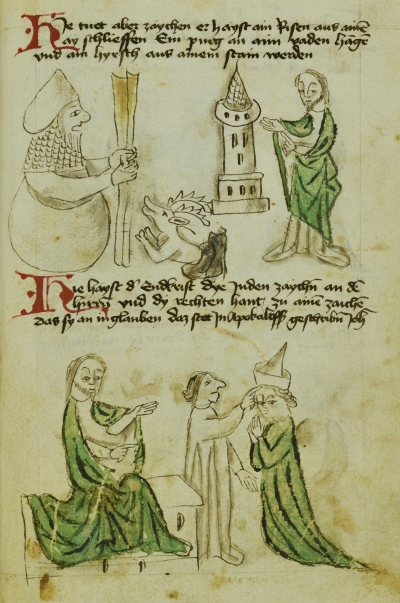 Hie tuet aber zaychen er hayst ain Risen aus aine
ay schlieffen Ein purg an aim vaden hange
vnd ain hyrsch aus ainem stain werden
Hie hayst d Endkrist dye Juden zaychn an de
hirn vnd dy rechten hant zu aine zaiche
das sy an in glauben daz stet In Apokalipss geschribn